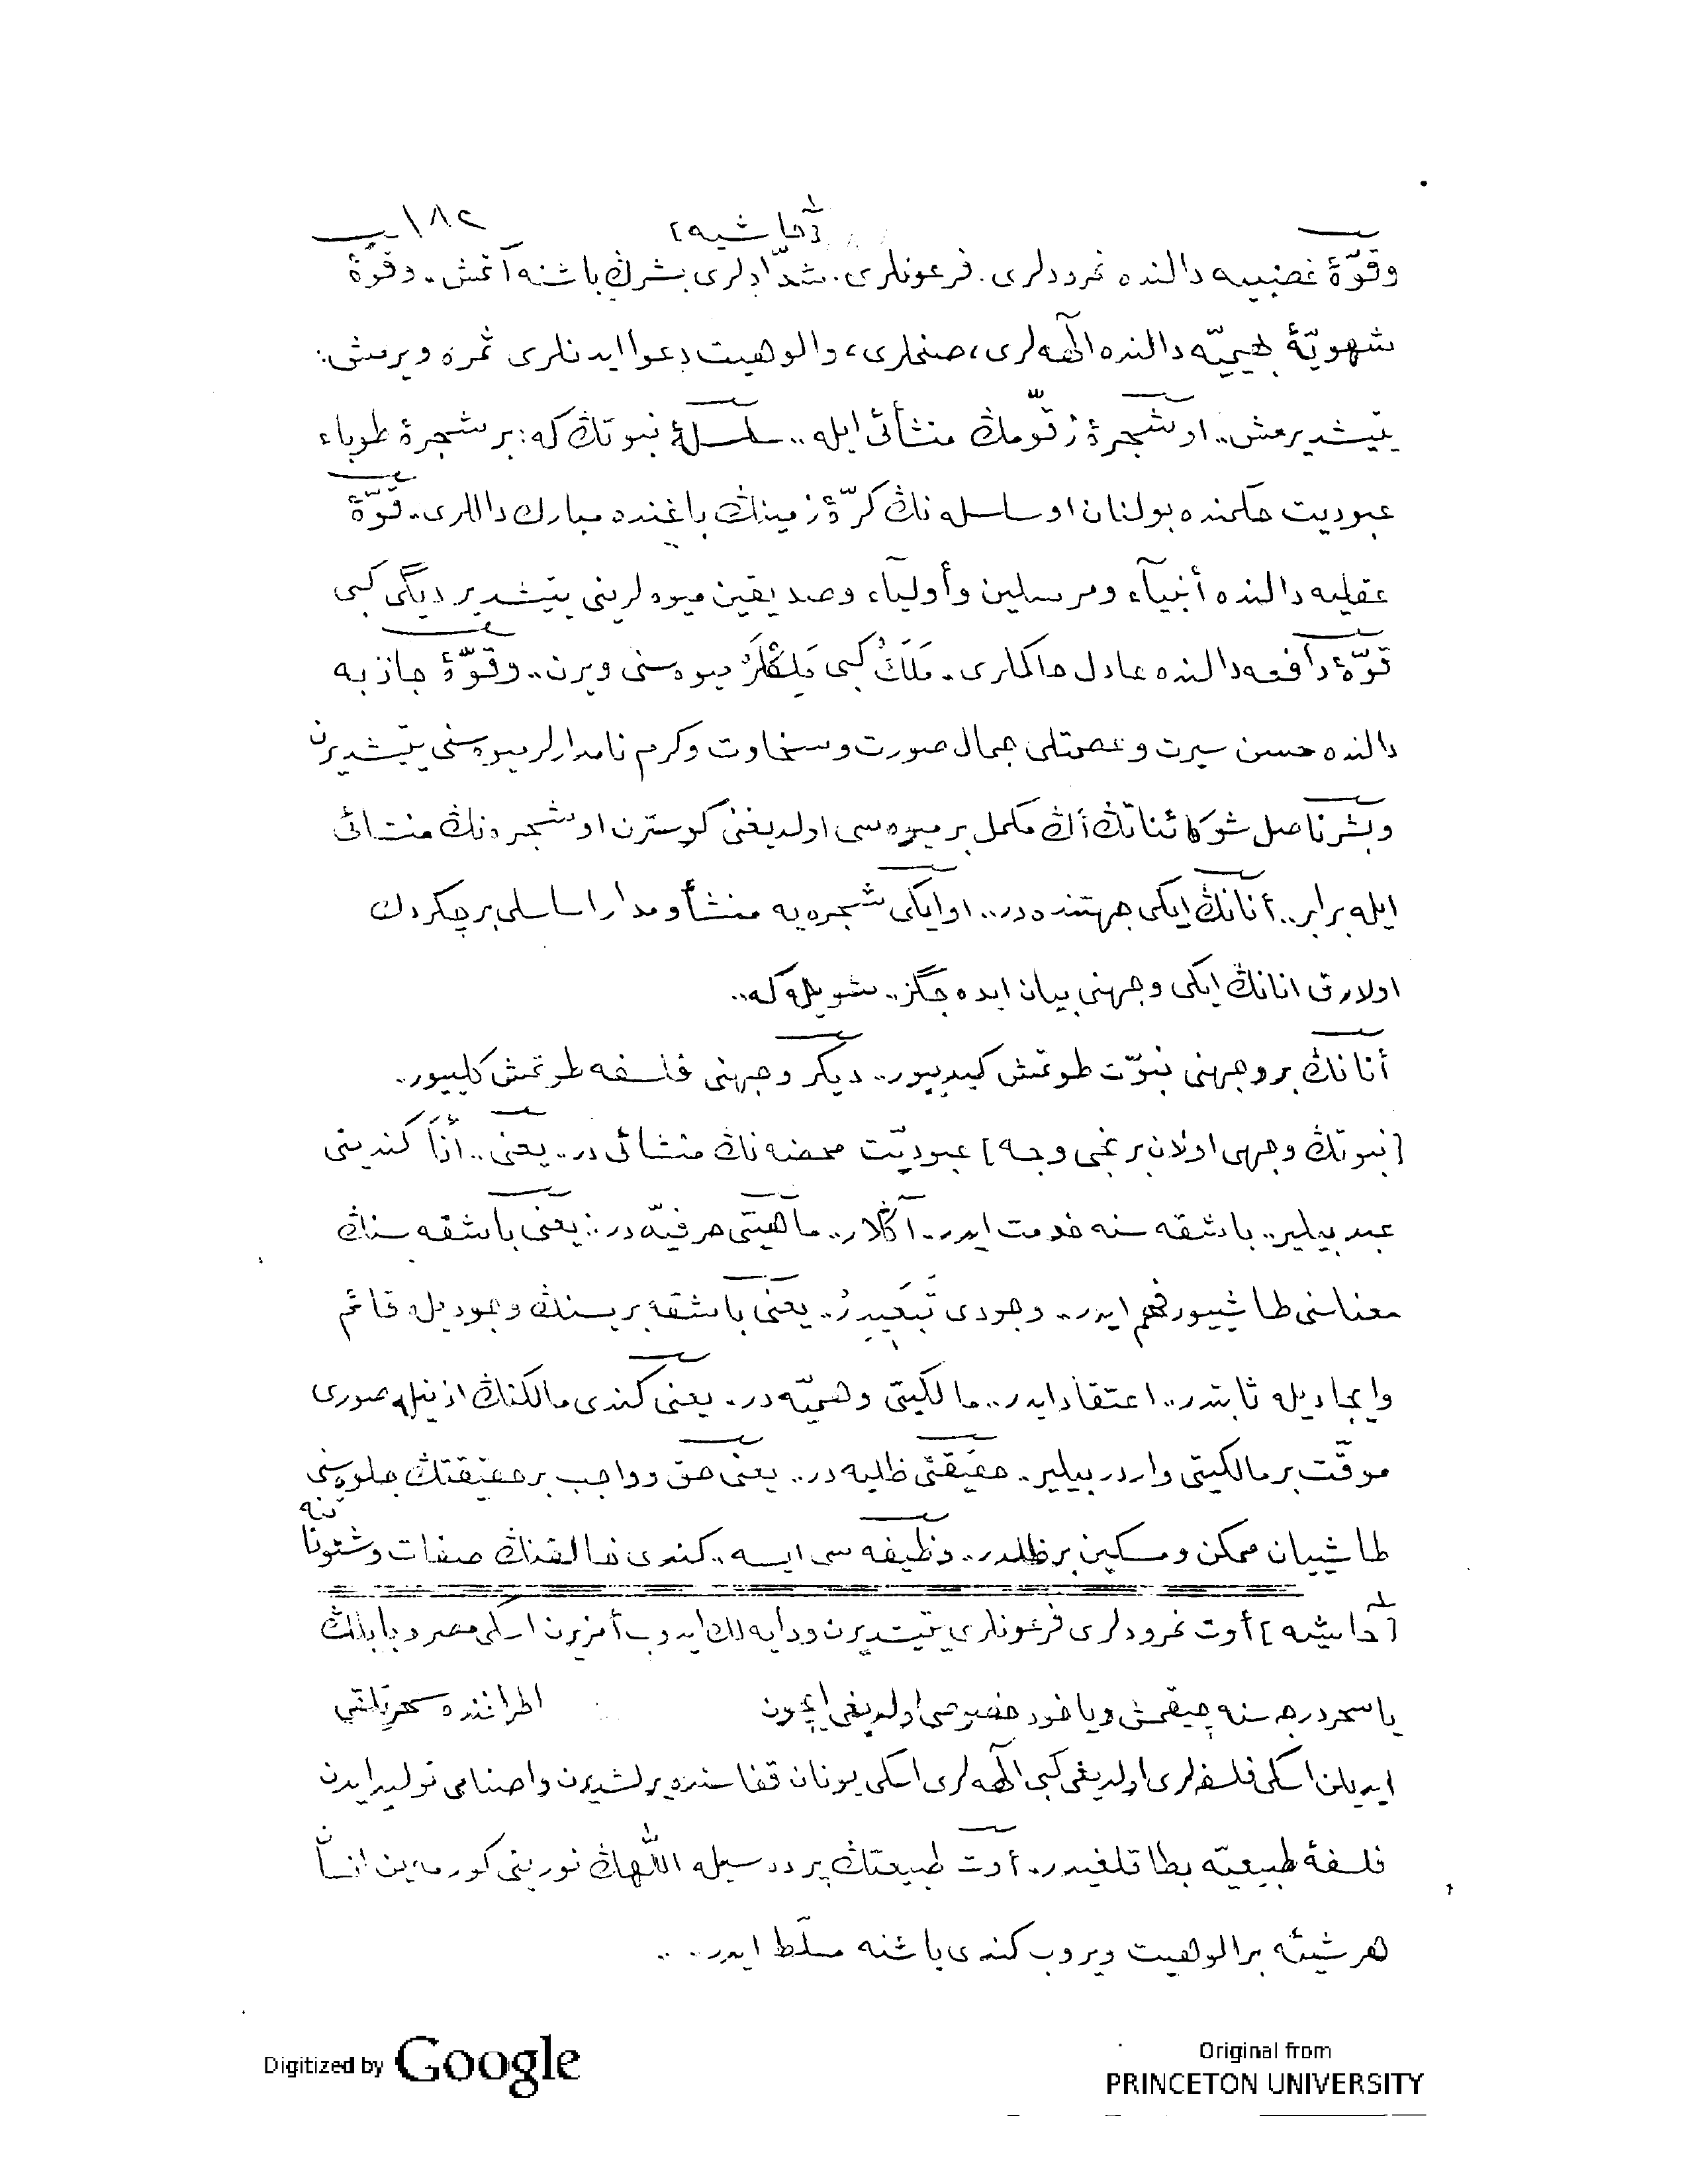 ١٨٢ [حاشيه]
وقوّۀ غضبيه دالنده نمرودلرى. فرعونلرى. شدّادلرى بشرڭ باشنه آتمش.. وقوّۀ
شهويّۀ بهيميّه دالنده آلهه‌لرى، صنملرى، والوهيت دعوا ايدنلرى ثمره ويرمش..
يتيشديرمش.. او شجرۀ زقّومڭ منشأئى ايله.. سلسلۀ نبوتڭ كه: بر شجرۀ طوباء
عبوديت حكمنده بولنان او سلسله نڭ كرّۀ زمينڭ باغنده مبارك داللرى.. قوّۀ
عقليه دالنده أنبيآء ومرسلين وأوليآء وصديقين ميوه لرينى يتيشديرديگى كبى
قوّۀ دافعه دالنده عادل حاكملرى.. مَلَكْ كبى مَلِكْلَرْ ميوه سنى ويرن.. وقوّۀ جاذبه
دالنده حسن سيرت وعصمتلى جمال صورت وسخاوت وكرم نامدارلر ميوه سنى يتيشديرن
وبشر ناصل شو كائناتڭ أڭ مكمل بر ميوه سى اولديغنى كوسترن او شجره نڭ منشائى
ايله برابر.. أنانڭ ايكى جهتنده در.. او ايكى شجره يه منشأ ومدار اساسلى بر چكردك
اولارق انانڭ ايكى وجهنى بيان ايده جگز.. شويله كه..
أنانڭ بر وجهنى نبوّت طوتمش كيدييور.. ديكر وجهنى فلسفه طوتمش كلييور..
[نبوتڭ وجهى اولان برنجى وجه] عبوديّت محضه نڭ منشائى در.. يعنى.. أنَا كندينى
عبد بيلير.. باشقه سنه خدمت ايدر.. آڭلار.. ماهيتى حرفيّه در.. يعنى باشقه سنڭ
معناسنى طاشييور فهم ايدر.. وجودى تَبَعِيدِرْ.. يعنى باشقه بريسنڭ وجوديله قائم
وايجاديله ثابتدر.. اعتقاد ايدر.. مالكيتى وهميّه در.. يعنى كندى مالكنڭ اذنيله صورى
موقّت بر مالكيتى واردر بيلير.. حقيقتى ظليه در.. يعنى حق وواجب بر حقيقتڭ جلوه سنى
طاشييان ممكن ومسكين بر ظلدر.. وظيفه سى ايسه.. كندى خالقنڭ صفات وشئوناتنه
[حاشيه] أوت نمرودلرى فرعونلرى يتيشديرن ودايه لك ايدوب أمزيرن اسكى مصر وبابلڭ
يا سحر درجه سنه چيقمش وياخود خصوصى اولديغى ايچون اطرافنده سحر تلقى
ايديلن اسكى فلسفه لرى اولديغى كبى آلهه‌لرى اسكى يونان قفاسنده يرلشديرن واصنامى توليد ايدن
فلسفۀ طبيعيّه بطاقلغيدر.. أوت طبيعتڭ پرده سيله اللّٰهڭ نورينى كورمه‌ين انسان
هر شيئه بر الوهيت ويروب كندى باشنه مسلّط ايدر..
Digitized by Google
Original from
PRINCETON UNIVERSITY